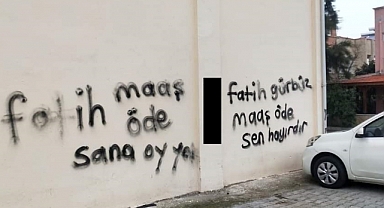 fatih maaş
öde
sana oy yok
fatih gürbüz
maaş öde
sen hayırdır